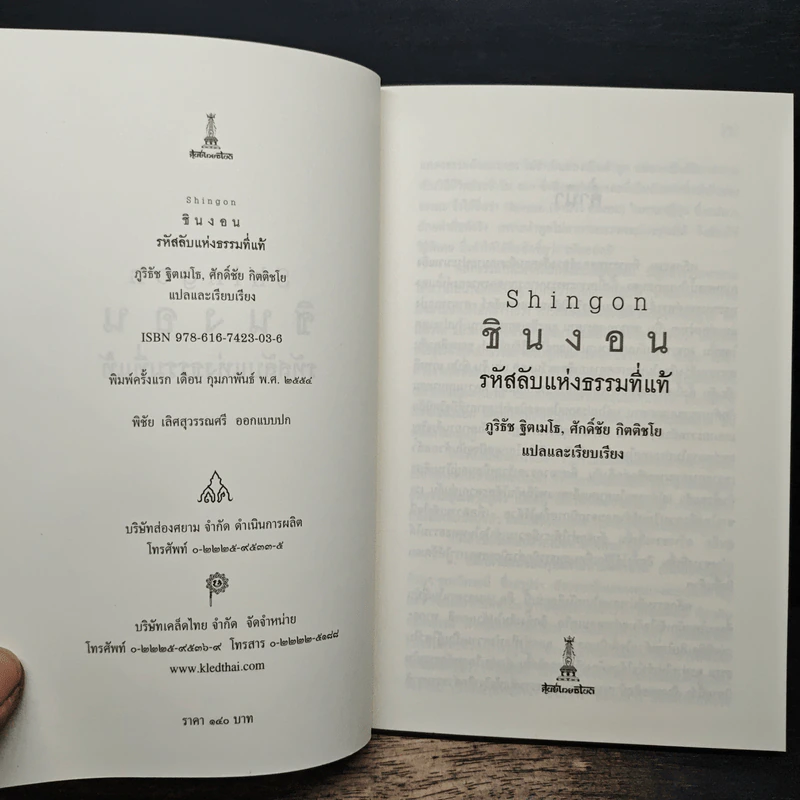 ศูนย์ไทยธิเบต
Shingon
ชินงอน
รหัสลับแห่งธรรมที่แท้
ภูริธัช ฐิตเมโธ, ศักดิ์ชัย กิตติชโย
แปลและเรียบเรียง
ISBN 978-616-7423-03-6
พิมพ์ครั้งแรก เดือน กุมภาพันธ์ พ.ศ. ๒๕๕๔
พิชัย เลิศสุวรรณศรี ออกแบบปก
บริษัทส่องศยาม จำกัด ดำเนินการผลิต
โทรศัพท์ ๐-๒๒๒๕-๙๕๓๓-๕
บริษัทเคล็ดไทย จำกัด จัดจำหน่าย
โทรศัพท์ ๐-๒๒๒๕-๙๕๓๖-๙ โทรสาร ๐-๒๒๒๒-๕๑๘๘
www.kledthai.com
ราคา ๑๔๐ บาท
Shingon
ชินงอน
รหัสลับแห่งธรรมที่แท้
ภูริธัช ฐิตเมโธ, ศักดิ์ชัย กิตติชโย
แปลและเรียบเรียง
ศูนย์ไทยธิเบต